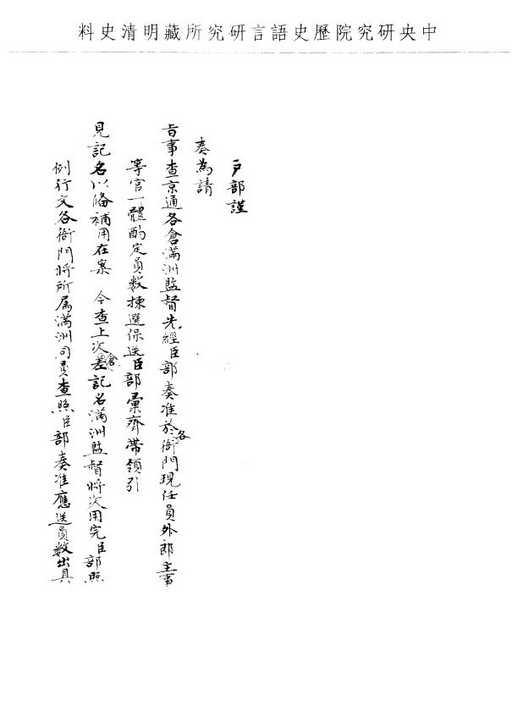 中央研究院歷史語言研究所藏明清史料
戶部謹
奏為請
旨事查京通各倉滿洲監督先經臣部奏准於各衙門現任員外郎主事
等官一體酌定員數揀選保送臣部彙齊帶領引
見記名以備補用在案 今查上次倉差記名滿洲監督將次用完臣部照
例行文各衙門將所属滿洲司員查照臣部奏准應送員數出具